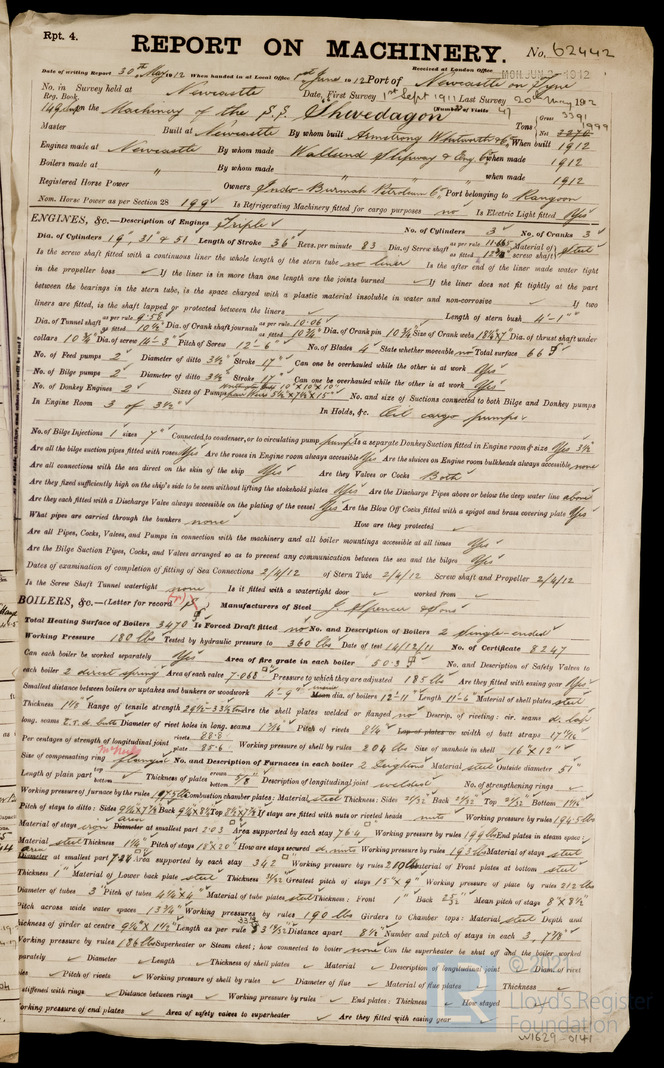 Rpt. 4.
REPORT ON MACHINERY.
No. 62442
Received at London Office MON. JUN. 3 - 1912
Date of writing Report 30th May 1912 When handed in at Local Office 1st June 1912 Port of Newcastle on Tyne
No. in Reg. Book. Survey held at Newcastle Date, First Survey 1st Sept 1911 Last Survey 20th May 1912
(Number of Visits 47
on the Machinery of the S.S. Shwedagon Tons Gross 3391 Net 1999
Master Built at Newcastle By whom built Armstrong Whitworth & Co. When built 1912
Engines made at Newcastle By whom made Wallsend Slipway & Eng. Co. when made 1912
Boilers made at " By whom made " when made 1912
Registered Horse Power Owners Indo-Burmah Petroleum Co. Port belonging to Rangoon
Nom. Horse Power as per Section 28 199 Is Refrigerating Machinery fitted for cargo purposes no Is Electric Light fitted Yes
ENGINES, &c.—Description of Engines Triple No. of Cylinders 3 No. of Cranks 3
Dia. of Cylinders 19", 31" & 51 Length of Stroke 36" Revs. per minute 83 Dia. of Screw shaft as per rule 11.665 as fitted 12 3/8" Material of screw shaft steel
Is the screw shaft fitted with a continuous liner the whole length of the stern tube no liner Is the after end of the liner made water tight
in the propeller boss ✓ If the liner is in more than one length are the joints burned ✓ If the liner does not fit tightly at the part
between the bearings in the stern tube, is the space charged with a plastic material insoluble in water and non-corrosive ✓ If two
liners are fitted, is the shaft lapped or protected between the liners ✓ Length of stern bush 4'-1"
Dia. of Tunnel shaft as per rule 9.58 as fitted 10 1/4 Dia. of Crank shaft journals as per rule 10.06 as fitted 10 3/4" Dia. of Crank pin 10 3/4 Size of Crank webs 18 1/4 x 7 Dia. of thrust shaft under
collars 10 3/4 Dia. of screw 14'-3" Pitch of Screw 12'-6" No. of Blades 4 State whether moveable no Total surface 66
No. of Feed pumps 2 Diameter of ditto 3 1/2 Stroke 17" Can one be overhauled while the other is at work Yes
No. of Bilge pumps 2 Diameter of ditto 3 3/4 Stroke 17" Can one be overhauled while the other is at work Yes
No. of Donkey Engines 2 Sizes of Pumps No. and size of Suctions connected to both Bilge and Donkey pumps
In Engine Room 3 of 3 1/2" In Holds, &c. Oil cargo pumps
No. of Bilge Injections 1 sizes 7" Connected to condenser, or to circulating pump pump Is a separate Donkey Suction fitted in Engine room & size Yes 3 1/2
Are all the bilge suction pipes fitted with roses Yes Are the roses in Engine room always accessible Yes Are the sluices on Engine room bulkheads always accessible none
Are all connections with the sea direct on the skin of the ship Yes Are they Valves or Cocks Both
Are they fixed sufficiently high on the ship's side to be seen without lifting the stokehold plates Yes Are the Discharge Pipes above or below the deep water line above
Are they each fitted with a Discharge Valve always accessible on the plating of the vessel Yes Are the Blow Off Cocks fitted with a spigot and brass covering plate Yes
What pipes are carried through the bunkers none How are they protected ✓
Are all Pipes, Cocks, Valves, and Pumps in connection with the machinery and all boiler mountings accessible at all times Yes
Are the Bilge Suction Pipes, Cocks, and Valves arranged so as to prevent any communication between the sea and the bilges Yes
Dates of examination of completion of fitting of Sea Connections 2/4/12 of Stern Tube 2/4/12 Screw shaft and Propeller 2/4/12
Is the Screw Shaft Tunnel watertight none Is it fitted with a watertight door ✓ worked from ✓
BOILERS, &c.—(Letter for record ) Manufacturers of Steel J. Spencer & Sons
Total Heating Surface of Boilers 3470 Is Forced Draft fitted no No. and Description of Boilers 2 Single-ended
Working Pressure 180 lbs Tested by hydraulic pressure to 360 lbs Date of test 14/12/11 No. of Certificate 8247
Can each boiler be worked separately Yes Area of fire grate in each boiler 50.3 No. and Description of Safety Valves to
each boiler 2 direct spring Area of each valve 7.068 Pressure to which they are adjusted 185 lbs Are they fitted with easing gear Yes
Smallest distance between boilers or uptakes and bunkers or woodwork 4'-9" Mean dia. of boilers 12'-11" Length 11'-6" Material of shell plates steel
Thickness 1 1/8 Range of tensile strength 29 1/2-33 1/2 tons Are the shell plates welded or flanged no Descrip. of riveting: cir. seams d. lap
long. seams t.r.d. butt Diameter of rivet holes in long. seams 1 3/16" Pitch of rivets 8 1/4 Lap of plates or width of butt straps 17 7/16
Per centages of strength of longitudinal joint rivets 88.8 plate 85.6 Working pressure of shell by rules 204 lbs Size of manhole in shell 16" x 12"
Size of compensating ring McNeils flanged No. and Description of Furnaces in each boiler 2 Deightons Material steel Outside diameter 51"
Length of plain part top bottom Thickness of plates crown bottom 5/8 Description of longitudinal joint welded No. of strengthening rings ✓
Working pressure of furnace by the rules 197 lbs Combustion chamber plates: Material steel Thickness: Sides 21/32" Back 21/32 Top 21/32 Bottom 1 1/16
Pitch of stays to ditto: Sides 9 1/4 x 7 7/8 Back 9 1/4 x 8 1/4 Top 8 1/4 x 7 7/8 If stays are fitted with nuts or riveted heads nuts Working pressure by rules 194.5 lbs
Material of stays iron area Diameter at smallest part 2.03 Area supported by each stay 76.4 Working pressure by rules 199 lbs End plates in steam space:
Material steel Thickness 1 1/16" Pitch of stays 18 x 20" How are stays secured d. nuts Working pressure by rules 193 lbs Material of stays steel
area Diameter at smallest part 7.24 Area supported by each stay 342 Working pressure by rules 210 lbs Material of Front plates at bottom steel
Thickness 1" Material of Lower back plate steel Thickness 31/32 Greatest pitch of stays 15" x 9" Working pressure of plate by rules 212 lbs
Diameter of tubes 3" Pitch of tubes 4 1/4 x 4" Material of tube plates steel Thickness: Front 1" Back 25/32" Mean pitch of stays 8" x 8 1/2
Pitch across wide water spaces 13 3/4" Working pressures by rules 190 lbs Girders to Chamber tops: Material steel Depth and
thickness of girder at centre 9 1/2 x 1 1/2" Length as per rule Distance apart 8 1/2" Number and pitch of stays in each 3, 7 7/8"
Working pressure by rules 186 lbs Superheater or Steam chest; how connected to boiler none Can the superheater be shut off and the boiler worked
separately ✓ Diameter ✓ Length ✓ Thickness of shell plates ✓ Material ✓ Description of longitudinal joint ✓ Diam. of rivet
holes ✓ Pitch of rivets ✓ Working pressure of shell by rules ✓ Diameter of flue ✓ Material of flue plates ✓ Thickness ✓
If stiffened with rings ✓ Distance between rings ✓ Working pressure by rules ✓ End plates: Thickness ✓ How stayed ✓
Working pressure of end plates ✓ Area of safety valves to superheater ✓ Are they fitted with easing gear ✓
© 2021
Lloyd's Register
Foundation
W1629-0141